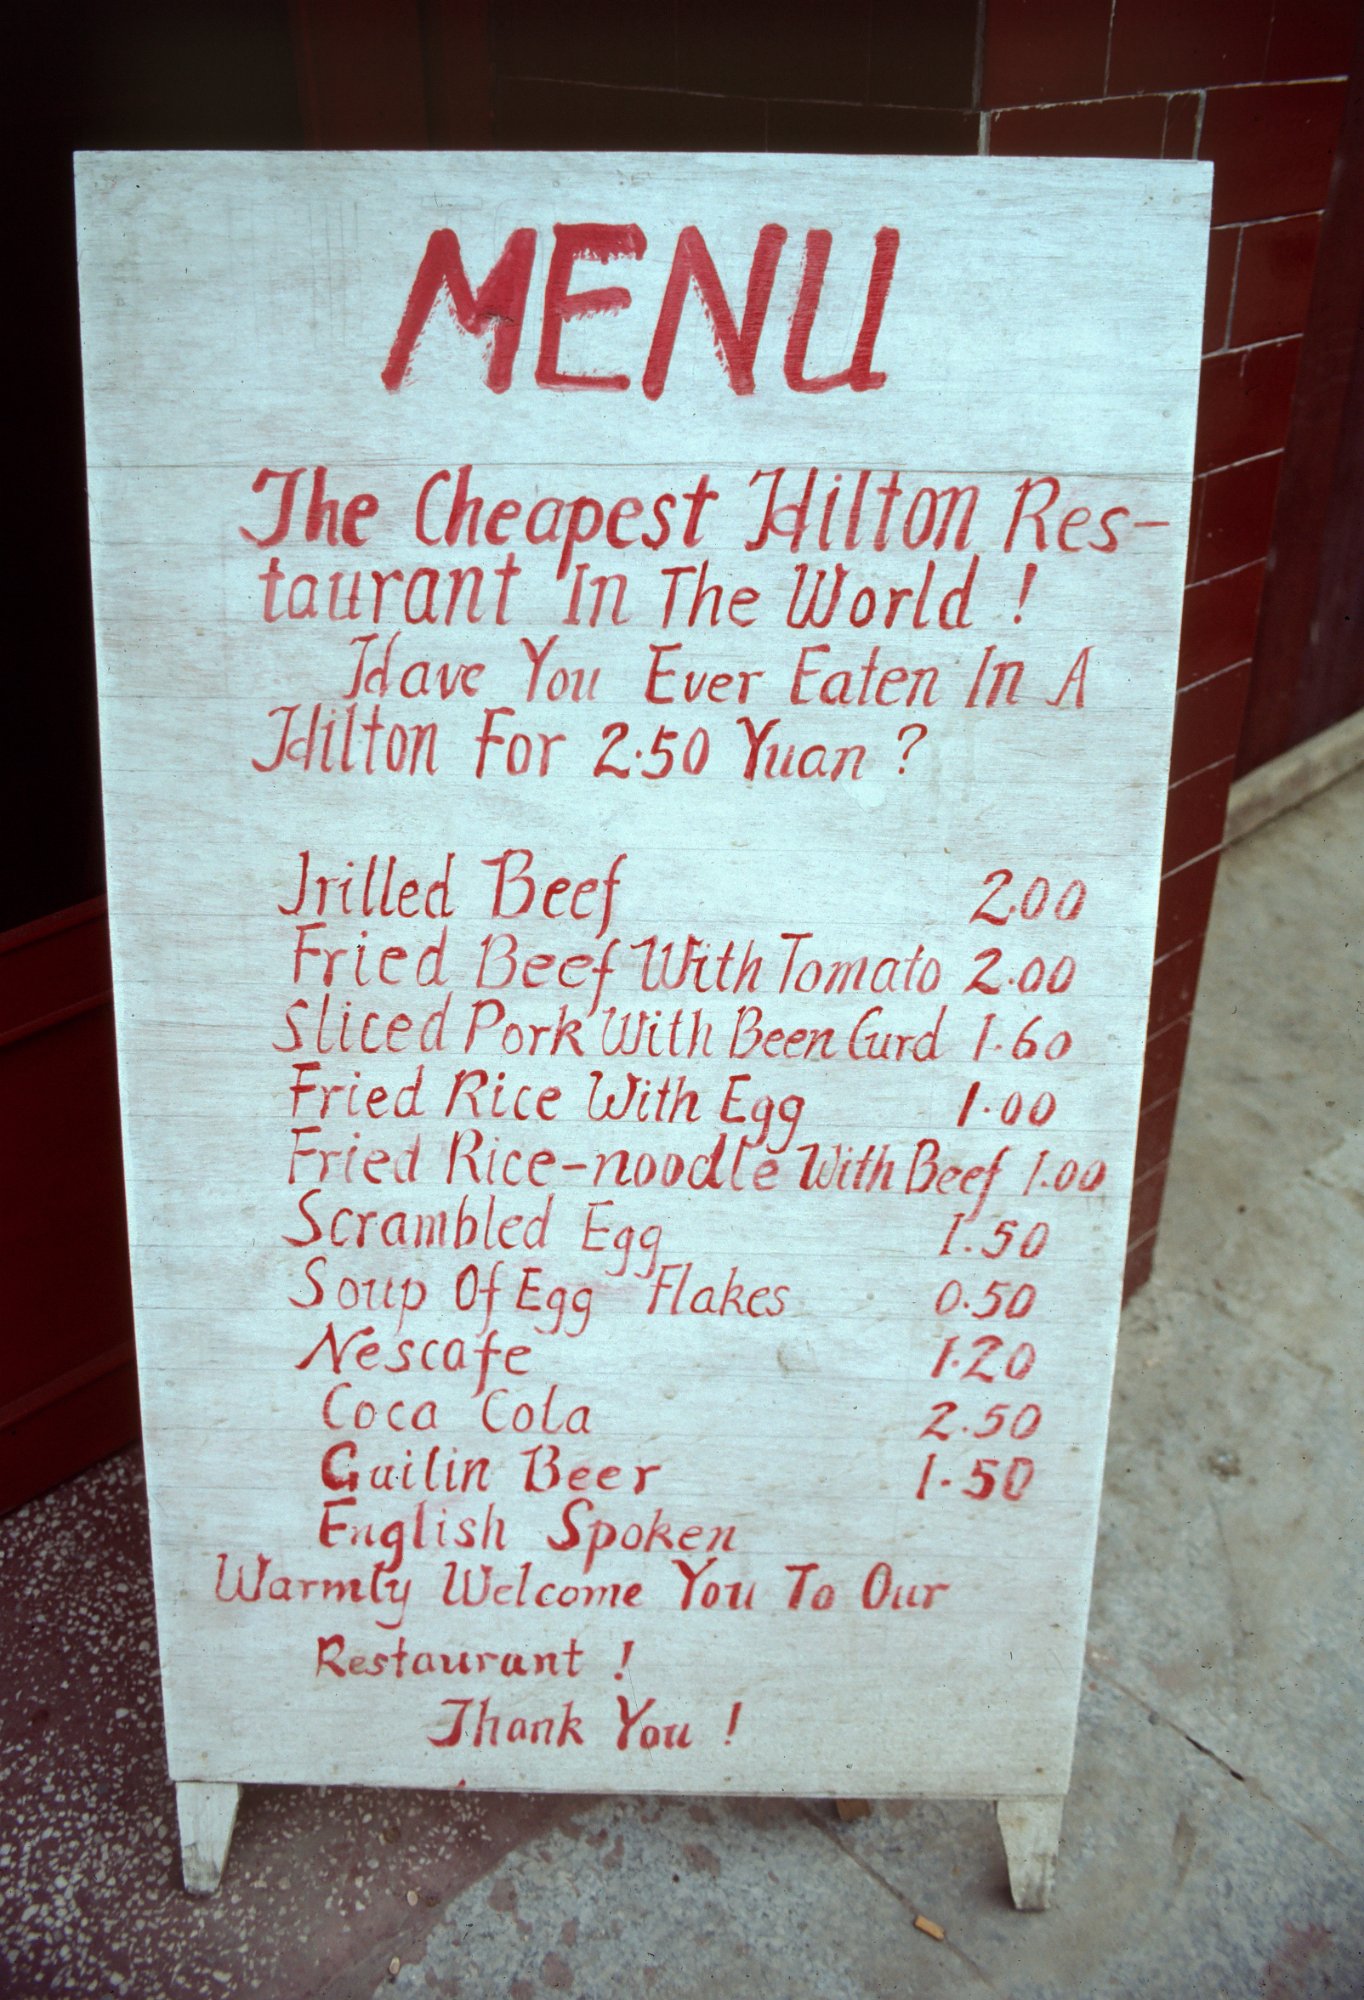 MENU
The Cheapest Hilton Res-
taurant In The World !
Have You Ever Eaten In A
Hilton For 2.50 Yuan ?
Jrilled Beef 2.00
Fried Beef With Tomato 2.00
Sliced Pork With Been Curd 1.60
Fried Rice With Egg 1.00
Fried Rice-noodle With Beef 1.00
Scrambled Egg 1.50
Soup Of Egg Flakes 0.50
Nescafe 1.20
Coca Cola 2.50
Guilin Beer 1.50
English Spoken
Warmly Welcome You To Our
Restaurant !
Thank You !